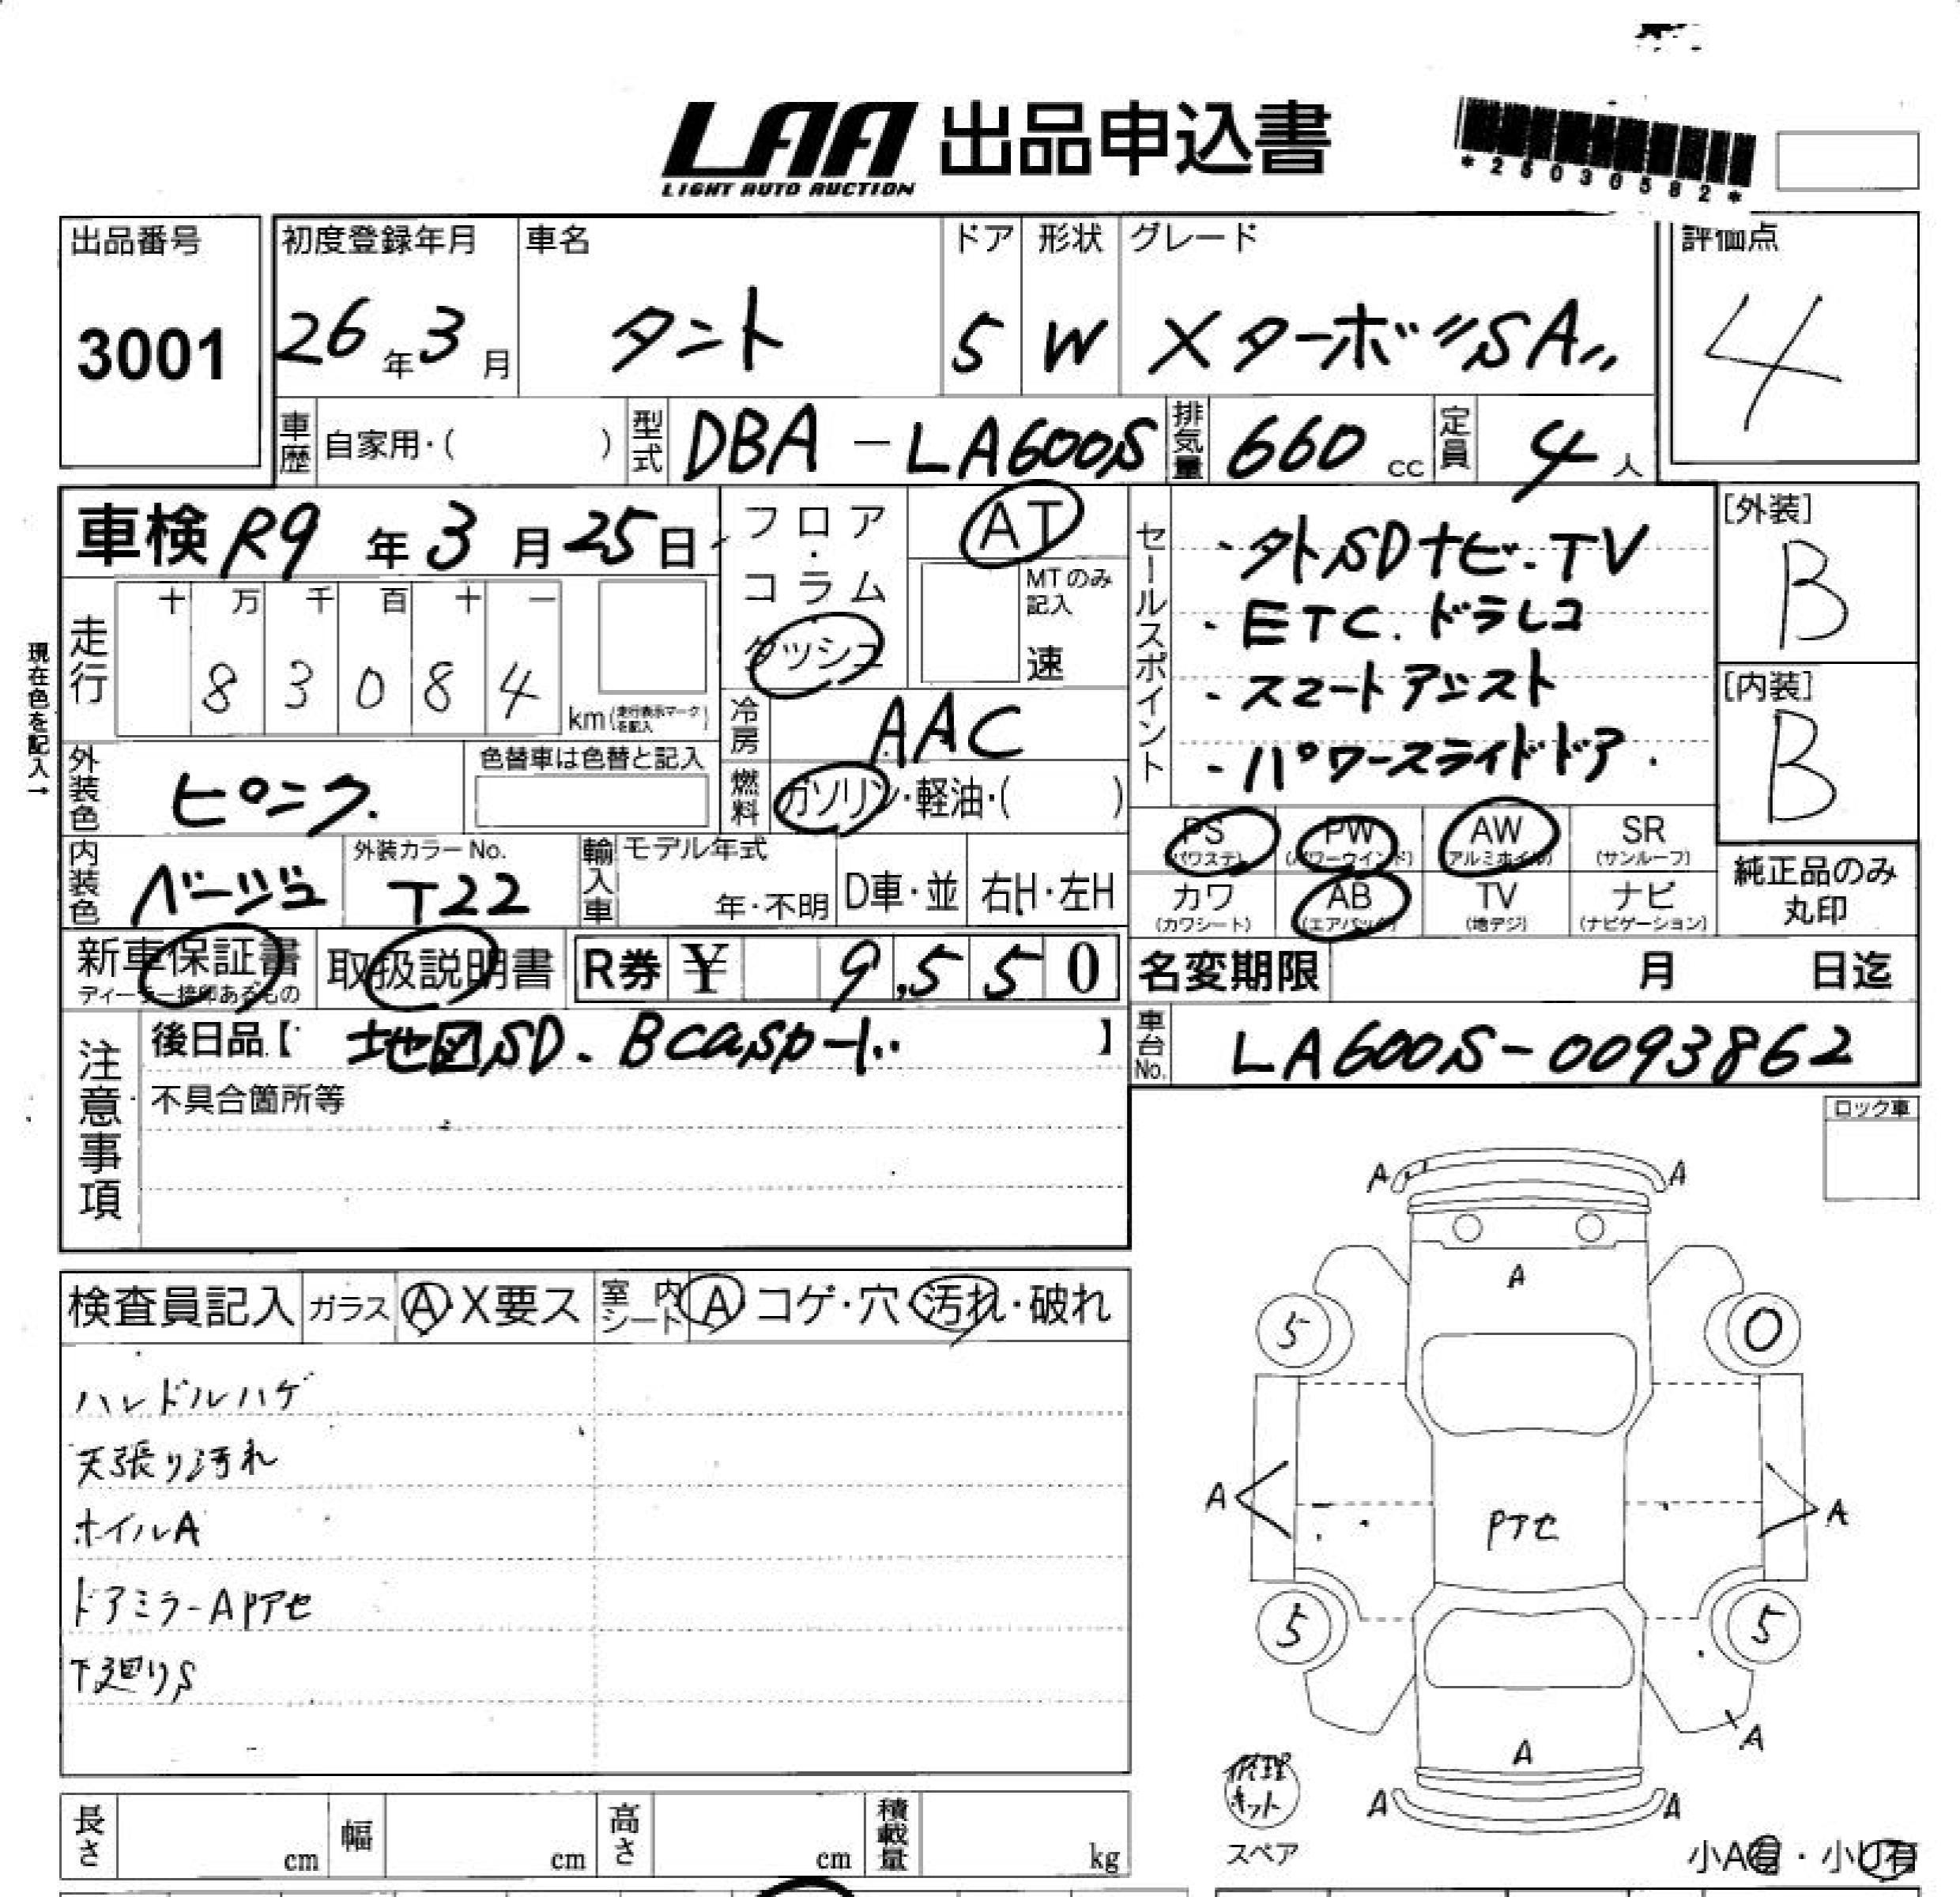 LAA 出品申込書
LIGHT AUTO AUCTION
*25030582*
出品番号
3001
初度登録年月
26年3月
車名
タント
ドア
5
形状
W
グレード
Xターボ"SA"
評価点
4
車歴 自家用・( )
型式 DBA-LA600S
排気量 660 cc
定員 4人
車検 R9年3月25日
フロア・コラム
ダッシュ
AT
MTのみ記入
速
セールスポイント
・外SDナビ.TV
・ETC.ドラレコ
・スマートアシスト
・パワースライドドア.
[外装]
B
[内装]
B
現在色を記入→
走行
十 万 千 百 十 一
8 3 0 8 4
km(走行表示マークを記入)
冷房 AAC
燃料 ガソリン・軽油・( )
外装色 ピンク.
色替車は色替と記入
内装色 ベージュ
外装カラーNo.
T22
輸入車 モデル年式
年・不明
D車・並
右H・左H
PS (パワステ)
PW (パワーウインド)
AW (アルミホイル)
SR (サンルーフ)
カワ (カワシート)
AB (エアバック)
TV (地デジ)
ナビ (ナビゲーション)
純正品のみ丸印
新車保証書
ディーラー捺印あるもの
取扱説明書
R券 ¥ 9,550
名変期限 月 日迄
注意事項
後日品【 地図SD. Bcasカード.. 】
不具合箇所等
車台No. LA600S-0093862
ロック車
検査員記入
ガラス A・X要ス
室内シート A コゲ・穴・汚れ・破れ
ハンドルハゲ
天張り汚れ
ホイルA
ドアミラーA Pアセ
下廻りS
A A
A
5 0
A A
Pアセ
5 5
A
A
A A
修理キット
スペア
小A有・小U有
長さ cm
幅 cm
高さ cm
積載量 kg